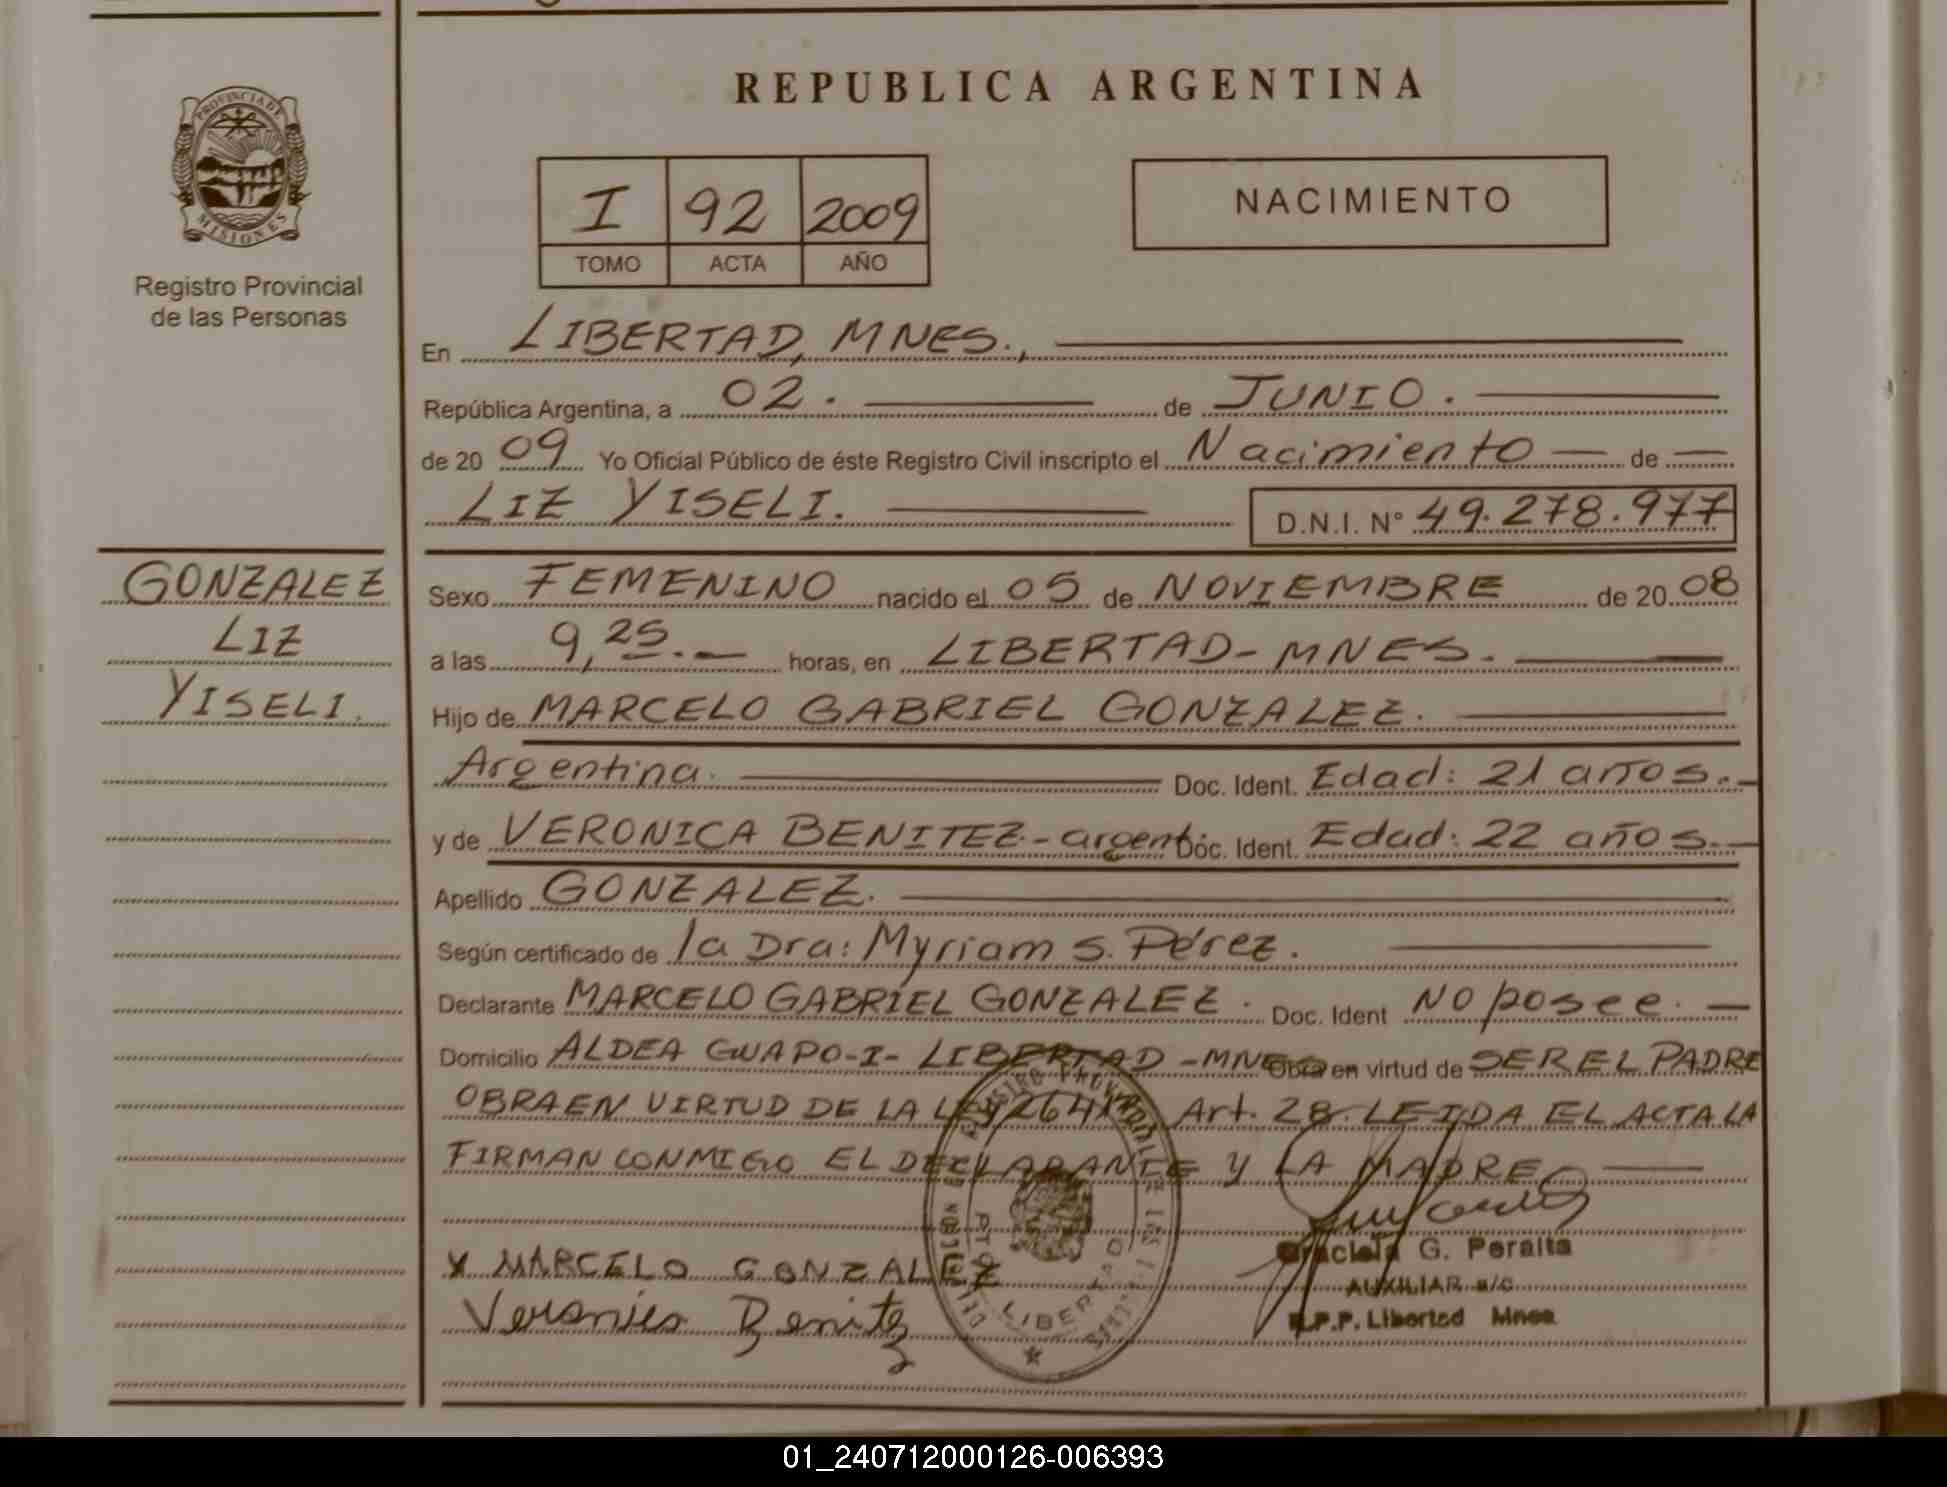 REPUBLICA ARGENTINA
PROVINCIA DE
MISIONES
Registro Provincial
de las Personas
I 92 2009
TOMO ACTA AÑO
NACIMIENTO
En LIBERTAD, MNES.,
República Argentina, a 02. de JUNIO.
de 20 09 Yo Oficial Público de éste Registro Civil inscripto el Nacimiento de
LIZ YISELI. D.N.I. N° 49.278.977
GONZALEZ
LIZ
YISELI.
Sexo FEMENINO nacido el 05 de NOVIEMBRE de 20 08
a las 9,25. horas, en LIBERTAD - MNES.
Hijo de MARCELO GABRIEL GONZALEZ.
Argentina. Doc. Ident. Edad: 21 años.
y de VERONICA BENITEZ - argent Doc. Ident. Edad: 22 años.
Apellido GONZALEZ.
Según certificado de la Dra: Myriam S. Pérez.
Declarante MARCELO GABRIEL GONZALEZ. Doc. Ident NO posee.
Domicilio ALDEA GUAPO-I- LIBERTAD - MNES Obra en virtud de SER EL PADRE
OBRA EN VIRTUD DE LA LEY Art. 28. LEIDA EL ACTA LA
FIRMAN CONMIGO EL DECLARANTE Y LA MADRE
X MARCELO GONZALEZ
Veronica Benitez
LIBERTAD
Graciela G. Peralta
AUXILIAR a/c
R.P.P. Libertad Mnes
01_240712000126-006393